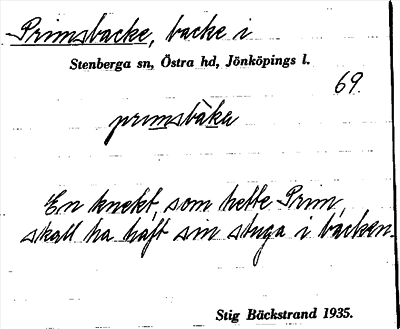 Primsbacke, backe i
Stenberga sn, Östra hd, Jönköpings l.
69.
primsbàka
En knekt, som hette Prim,
skall ha haft sin stuga i backen.
Stig Bäckstrand 1935.